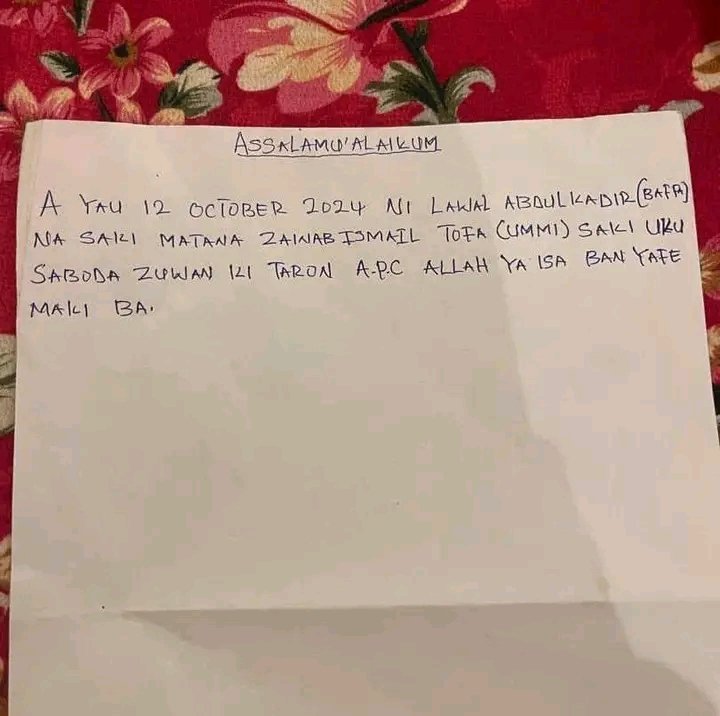 ASSALAMU'ALAIKUM
A YAU 12 OCTOBER 2024 NI LAWAL ABDULKADIR (BAFFA)
NA SAKI MATANA ZAINAB ISMAIL TOFA (UMMI) SAKI UKU
SABODA ZUWAN KI TARON A.P.C ALLAH YA ISA BAN YAFE
MAKI BA.